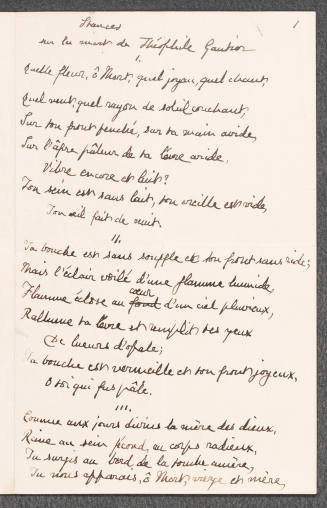 1
Stances
sur la mort de Théophile Gautier
I.
Quelle fleur, ô Mort, quel joyau, quel chant,
Quel vent, quel rayon de soleil couchant,
Sur ton front penché, sur ta main avide,
Sur l'âpre pâleur de ta lèvre aride,
Vibre encore et luit?
Ton sein est sans lait, ton oreille est vide,
Ton œil fait de nuit.
II.
Ta bouche est sans souffle et ton front sans ride;
Mais l'éclair voilé d'une flamme humide,
Flamme éclose au fond cœur d'un ciel pluvieux,
Rallume ta lèvre et remplit tes yeux
De lueurs d'opale;
Ta bouche est vermeille et ton front joyeux,
O toi qui fus pâle.
III.
Comme aux jours divins la mère des dieux,
Reine au sein fécond, au corps radieux,
Tu surgis au bord de la tombe amère,
Tu nous apparais, ô Mort, vierge et mère,